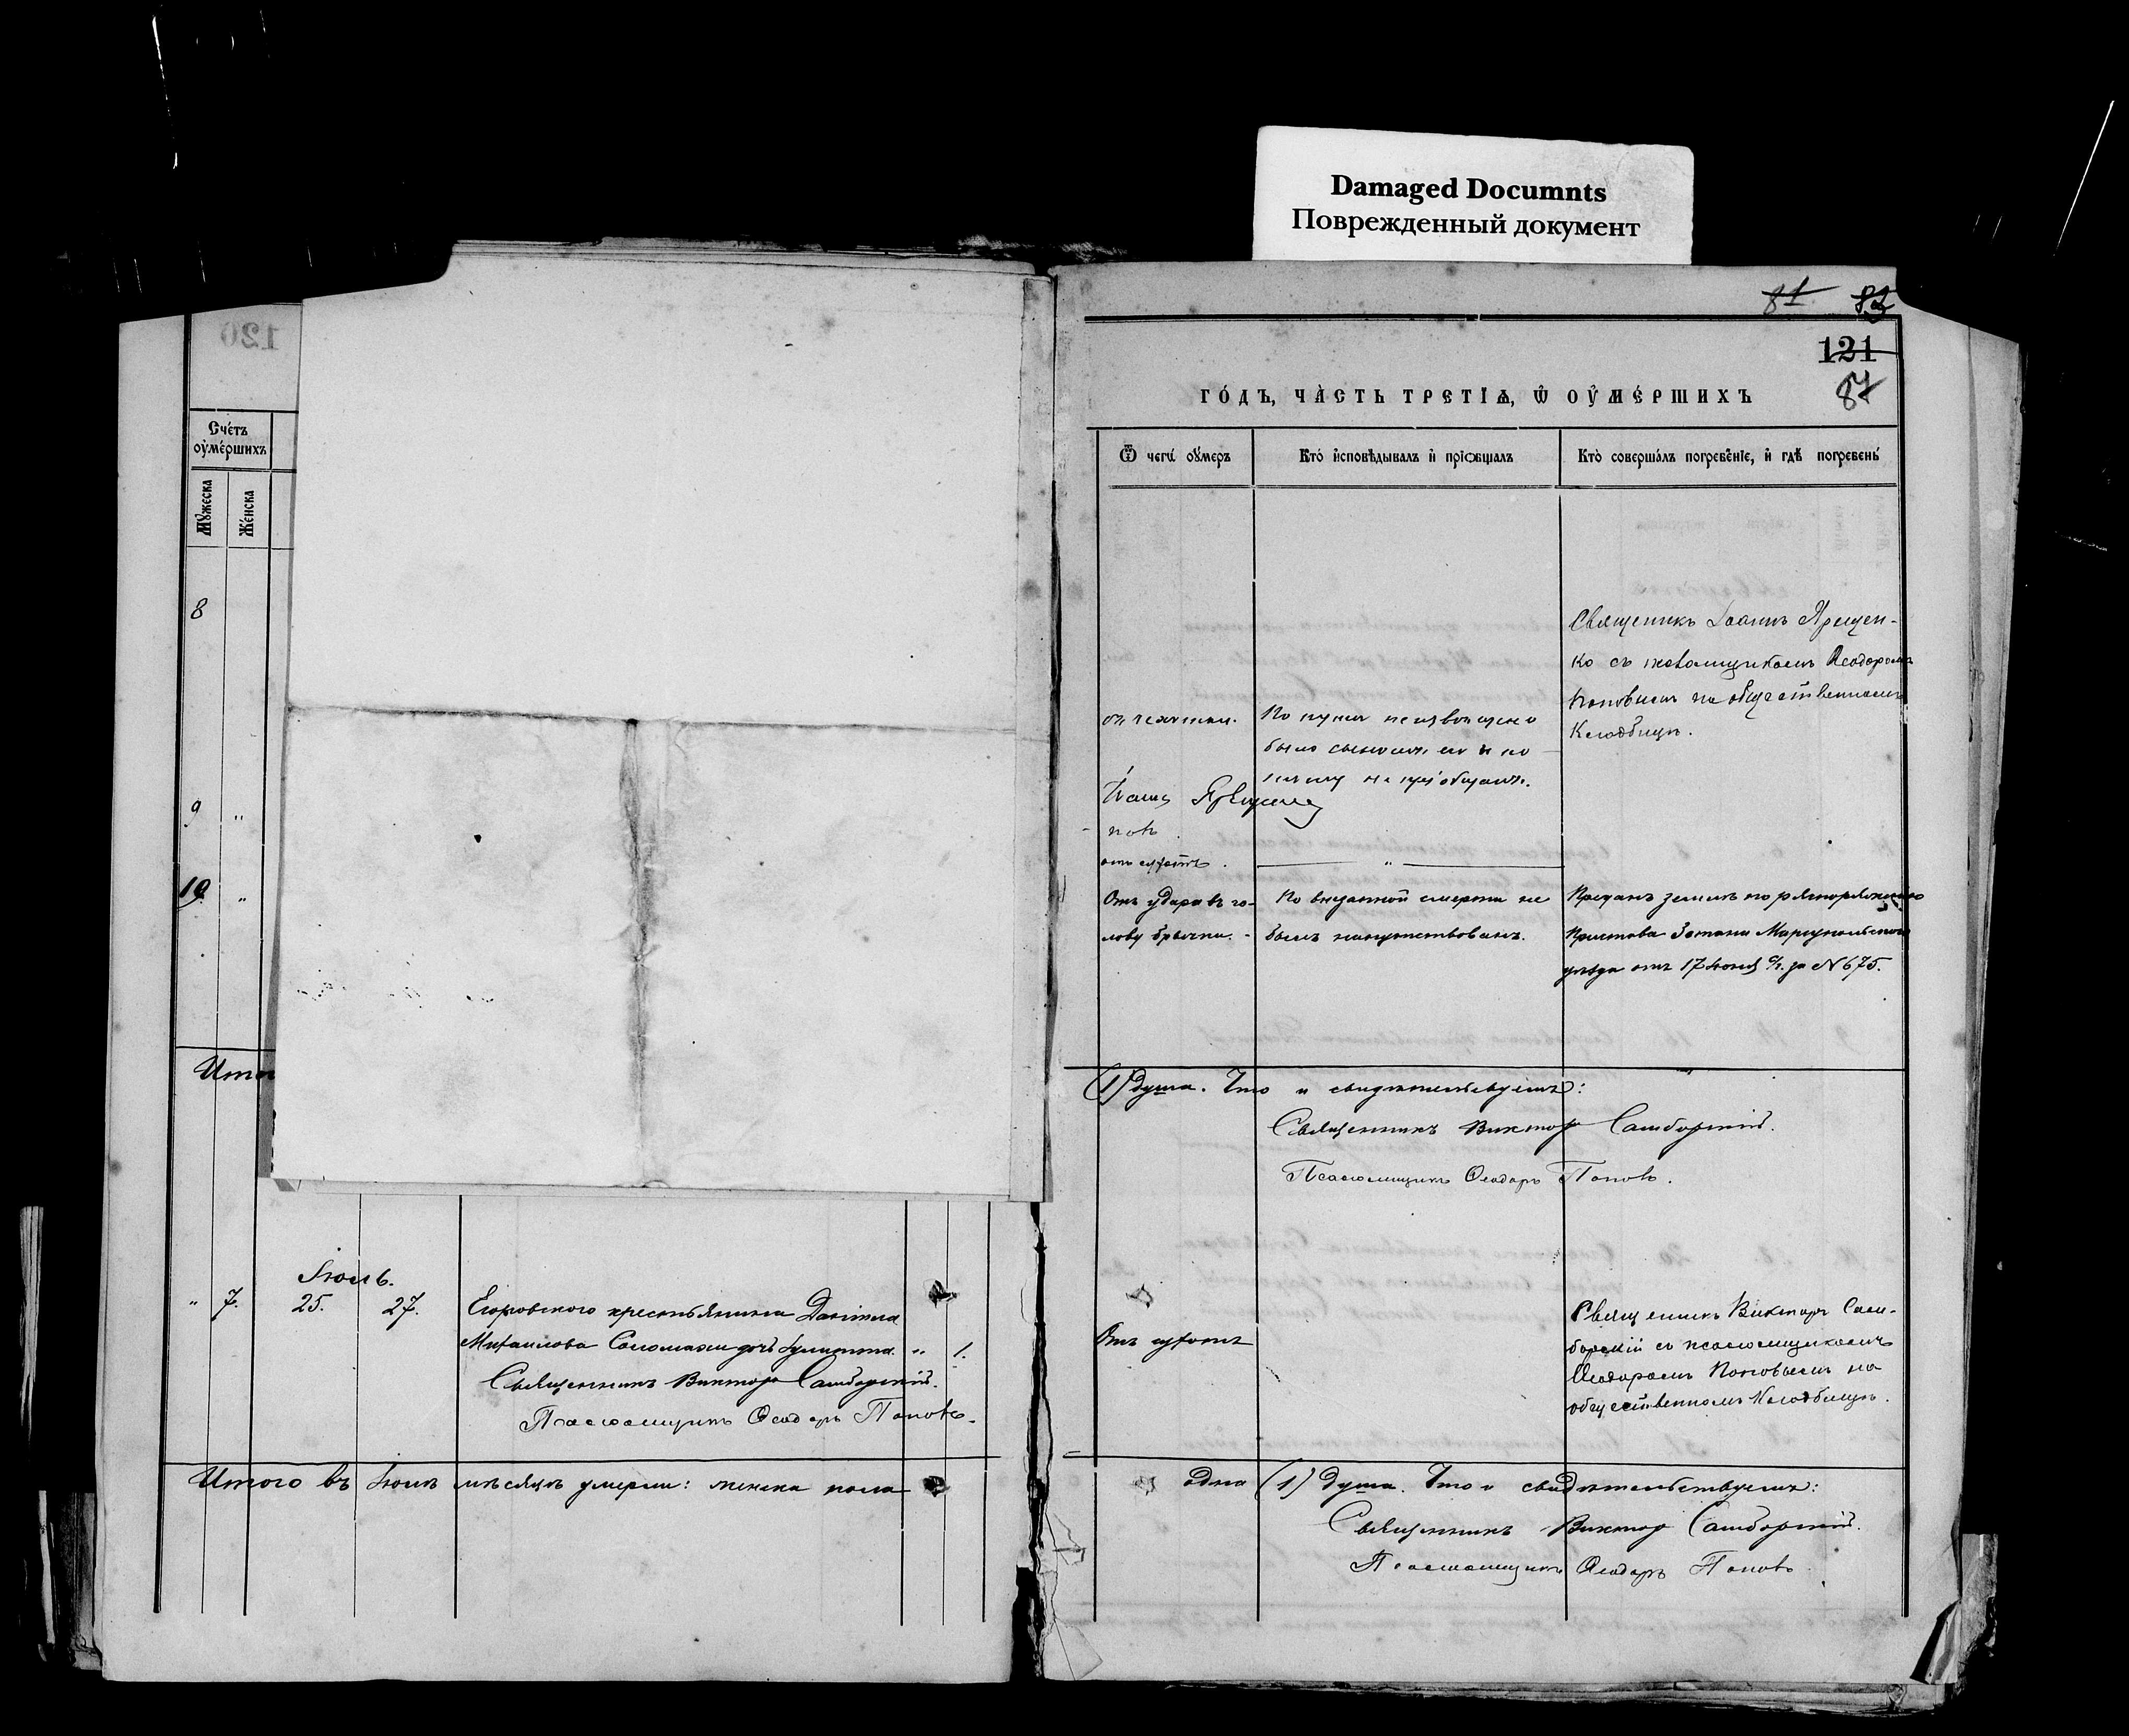 Damaged Documnts
Поврежденный документ
120
Счетъ
оумершихъ
Мужеска
Женска
8
9 "
10 "
Июль.
" 7. 25. 27. Егоровского крестьянина Даниила
Михаилова дочь " 1.
Священникъ Викторъ Самборский.
Псаломщикъ Ѳеодоръ Поповъ.
Итого въ Июле месяце умерли: женска пола
81 82
121
87
ГОДЪ, ЧАСТЬ ТРЕТІЯ, Ѡ ОУМЕРШИХЪ
Ѿ чегѡ оумеръ
Кто исповѣдывалъ и пріобщалъ
Кто совершалъ погребеніе, и гдѣ погребены
Священникъ Іоаннъ Ярещен-
ко съ псаломщикомъ Ѳеодоромъ
Поповымъ на общественномъ
Кладбищѣ.
было и по
не пріобщалъ.
"
Отъ удара въ го-
лову брички.
По внезапной смерти не
былъ напутствованъ.
Преданъ землѣ по распоряженію
Пристава 3 стана Мариупольского
уѣзда отъ 17 Июня с/г. за № 675.
(1) душа. Что и свидѣтельствуемъ:
Священникъ Викторъ Самборскій.
Псаломщикъ Ѳеодоръ Поповъ.
Священникъ Викторъ Сам-
борскій съ псаломщикомъ
Ѳеодоромъ Поповымъ на
общественномъ Кладбищѣ.
одна (1) душа. Что и свидѣтельствуемъ:
Священникъ Викторъ Самборскій.
Псаломщикъ Ѳеодоръ Поповъ